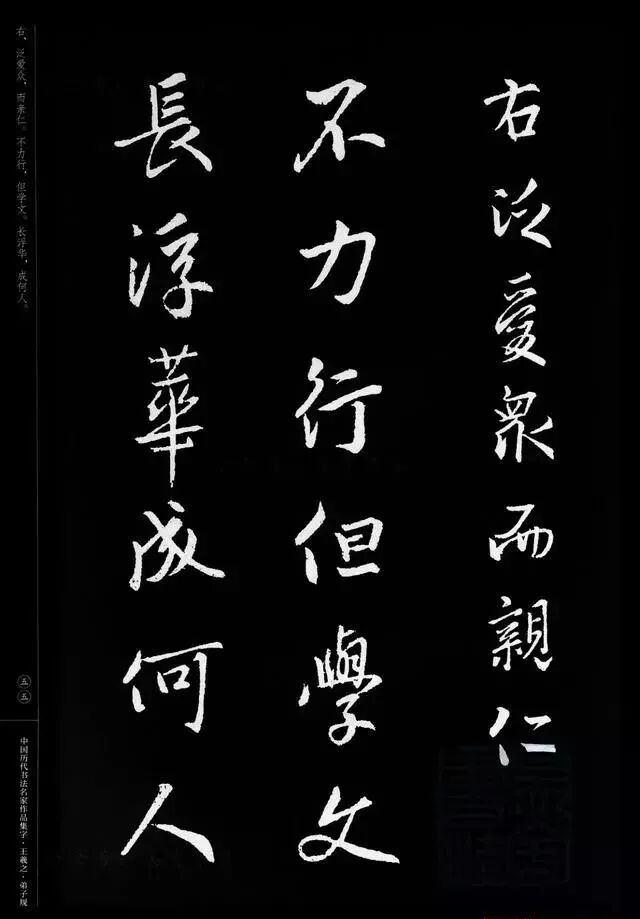 右泛愛眾而親仁
不力行但學文
長浮華成何人
右、泛爱众，而亲仁。不力行，但学文。长浮华，成何人。
五五
中国历代书法名家作品集字·王羲之·弟子规